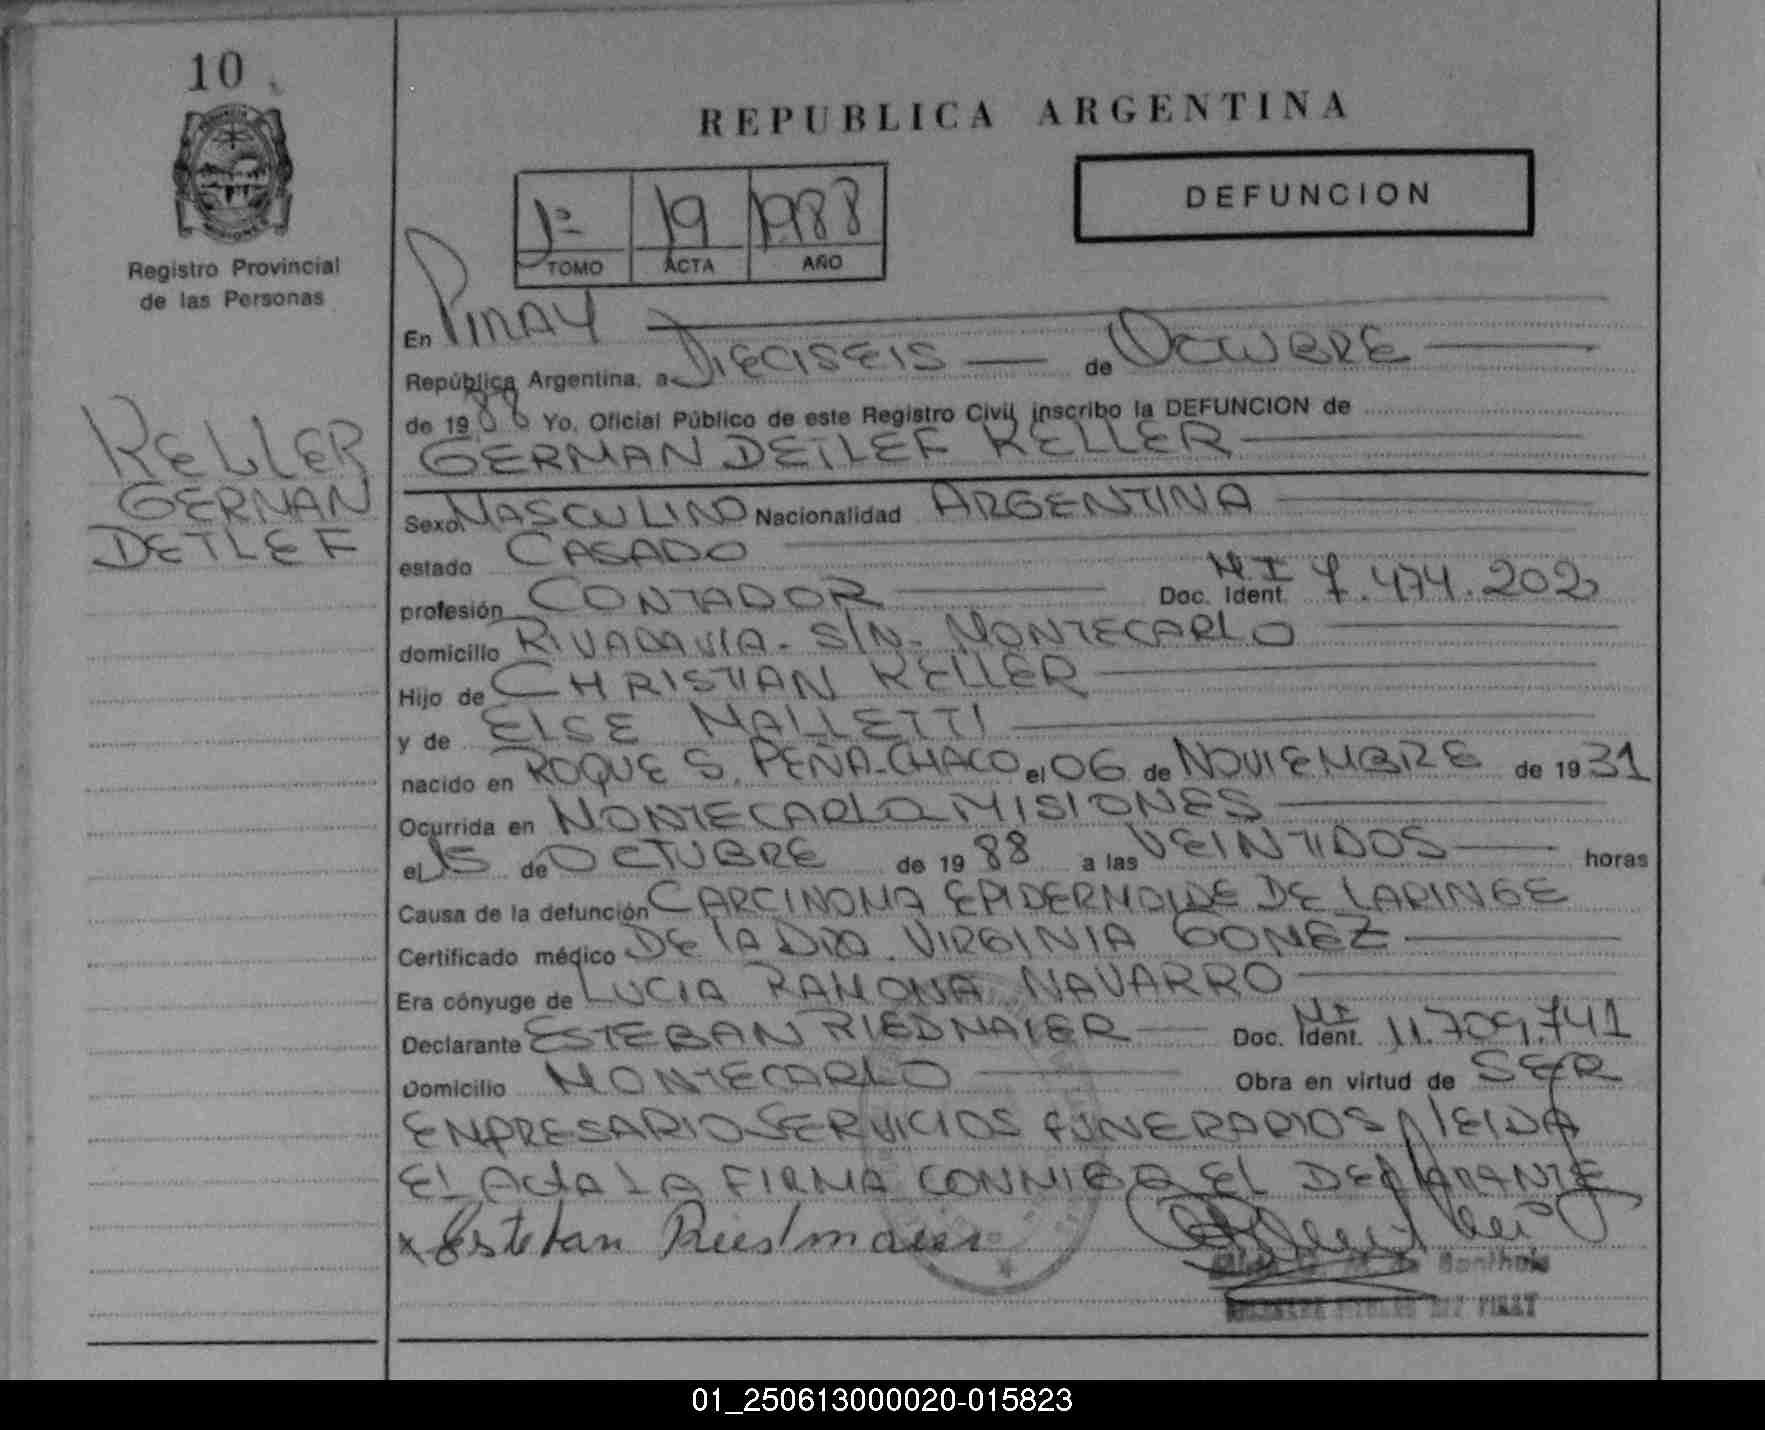 10
Registro Provincial
de las Personas
KELLER
GERMAN
DETLEF
REPUBLICA ARGENTINA
1º 19 1988
TOMO ACTA AÑO
DEFUNCION
En PIRAY
República Argentina, a DIECISEIS de OCTUBRE
de 1988 Yo, Oficial Público de este Registro Civil inscribo la DEFUNCION de
GERMAN DETLEF KELLER
Sexo MASCULINO Nacionalidad ARGENTINA
estado CASADO
profesión CONTADOR Doc. Ident. M.I 7.474.202
domicilio RIVADAVIA - S/N - MONTECARLO
Hijo de CHRISTIAN KELLER
y de ELSE MALLETTI
nacido en ROQUE S. PEÑA-CHACO el 06 de NOVIEMBRE de 1931
Ocurrida en MONTECARLO MISIONES
el 15 de OCTUBRE de 1988 a las VEINTIDOS horas
Causa de la defunción CARCINOMA EPIDERMOIDE DE LARINGE
Certificado médico DE LA DRA. VIRGINIA GOMEZ
Era cónyuge de LUCIA RAMONA NAVARRO
Declarante ESTEBAN RIEDMAIER Doc. Ident. M.I 11.709.741
Domicilio MONTECARLO Obra en virtud de SER
EMPRESARIO SERVICIOS FUNERARIOS LEIDA
EL ACTA LA FIRMA CONMIGO EL DECLARANTE
x Esteban Riedmaier
01_250613000020-015823